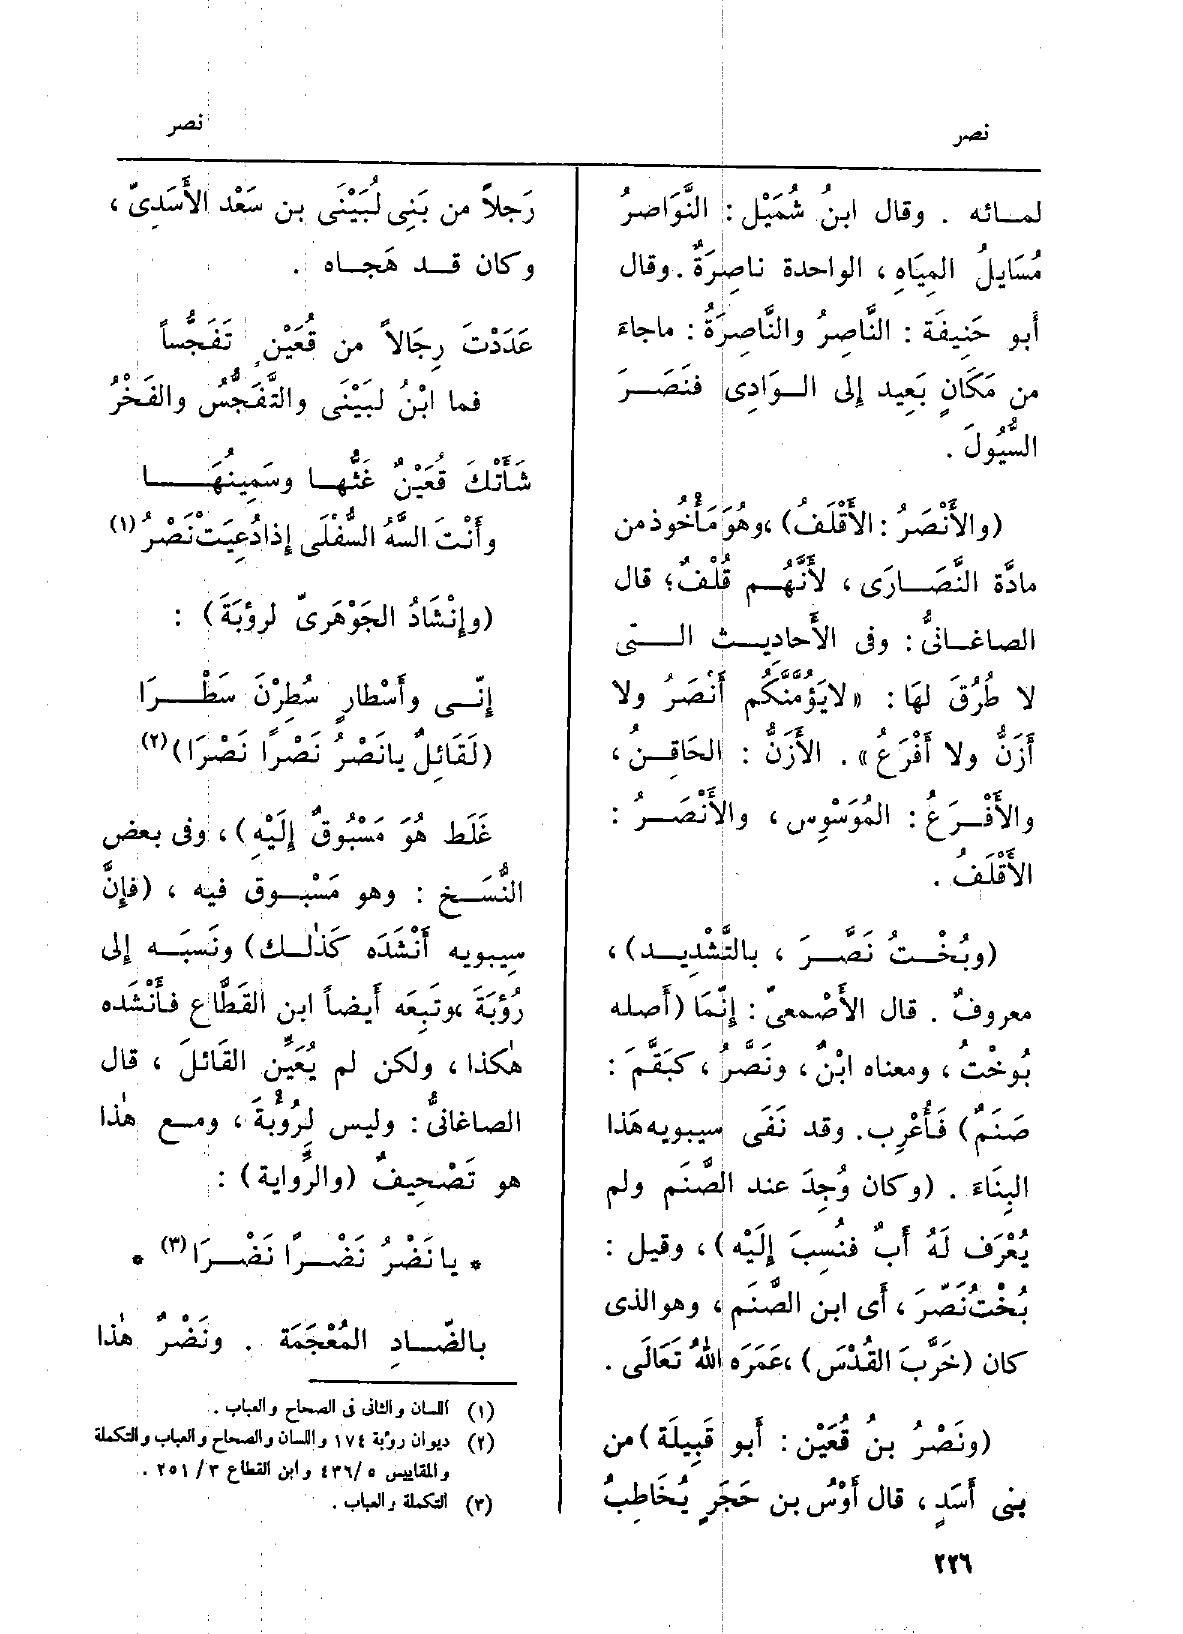 نصر
نصر
لمــائه . وقال ابنُ شُمَيْل : النَّوَاصِرُ
مُسَايلُ المِيَاهِ ، الواحدة ناصِرَةٌ . وقال
أبو حَنِيفَة : النَّاصِرُ والنَّاصِرَةُ : ماجاءَ
من مَكَانٍ بَعِيد إلى الــوَادِى فنَصَــرَ
السُّيُولَ .
(والأَنْصَرُ : الأَقْلَفُ) ، وهُوَ مَأْخُوذ من
مادَّة النَّصَــارَى ، لأَنَّهُــم قُلْفٌ ؛ قال
الصاغــانىُّ : وفى الأَحاديــث الــتى
لا طُرُقَ لهَا : «لايَؤُمَّنَّكُم أَنْصَرُ ولا
أَزَنُّ ولا أَفْرَعُ» . الأَزَنُّ : الحَاقِــنُ ،
والأَفْــرَعُ : المُوَسْوِس ، والأَنْصَــرُ :
الأَقْلَفُ .
(وبُخْــتُ نَصَّــرَ ، بالتَّشْدِيــد) ،
معروفٌ . قال الأَصْمعىّ : إِنَّمَا (أَصله
بُوخْتُ ، ومعناه ابْنٌ ، ونَصَّرُ ، كبَقَّمَ :
صَنَمٌ) فَأُعْرِب . وقد نَفَى سيبويه هَذا
البِنَاءَ . (وكان وُجِدَ عند الصَّنَم ولم
يُعْرَف لَهُ أَبٌ فنُسِبَ إِلَيْه) ، وقيل :
بُخْتُ نَصَّرَ ، أَى ابن الصَّنَم ، وهو الذى
كان (خَرَّبَ القُدْسَ) ، عَمَرَه اللهُ تَعَالَى .
(ونَصْرُ بنُ قُعَيْن : أَبو قَبِيلَة) من
بنى أَسَدٍ ، قال أَوْسُ بن حَجَرٍ يُخَاطِبُ
رَجلاً من بَنِى لُبَيْنَى بن سَعْد الأَسَدِىّ ،
وكان قــد هَجــاه .
عَدَدْتَ رِجَالاً من قُعَيْنٍ تَفَجُّساً
فما ابْنُ لبَيْنَى والتَّفَجُّس والفَخْرُ
شَأَتْكَ قُعَيْنٌ غَثُّهــا وسَمِينُهَــا
وأَنْتَ السَّهُ السُّفْلَى إِذا دُعِيَتْ نَصْرُ (١)
(وإِنْشَادُ الجَوْهَرِىّ لرؤبَةَ) :
إِنّــى وأَسْطارٍ سُطِرْنَ سَطْــرَا
(لَقَائِلٌ يانَصْرُ نَصْرًا نَصْرَا) (٢)
غَلَط هُوَ مَسْبُوقٌ إِلَيْهِ) ، وفى بعض
النُّسَــخ : وهو مَسْبــوق فيه ، (فإِنَّ
سيبويه أَنْشَدَه كَذٰلــك) ونَسبَــه إلى
رُؤبَةَ ، وتَبِعَه أَيضاً ابن القَطَّاع فأَنْشَده
هٰكذا ، ولكن لم يُعَيِّن القَائلَ ، قال
الصاغانىُّ : وليس لِرُؤْبةَ ، ومــع هٰذا
هو تَصْحِيفٌ (والرِّواية) :
* يا نَضْرُ نَضْــرًا نَضْــرَا (٣) *
بالضّــادِ المُعْجَمَة . ونَضْرٌ هٰذا
(١) اللسان والثانى فى الصحاح والعباب .
(٢) ديوان رؤبة ١٧٤ واللسان والصحاح والعباب والتكملة
والمقاييس ٤٣٦/٥ وابن القطاع ٣ /٢٥١ .
(٣) التكملة والعباب .
٢٢٦